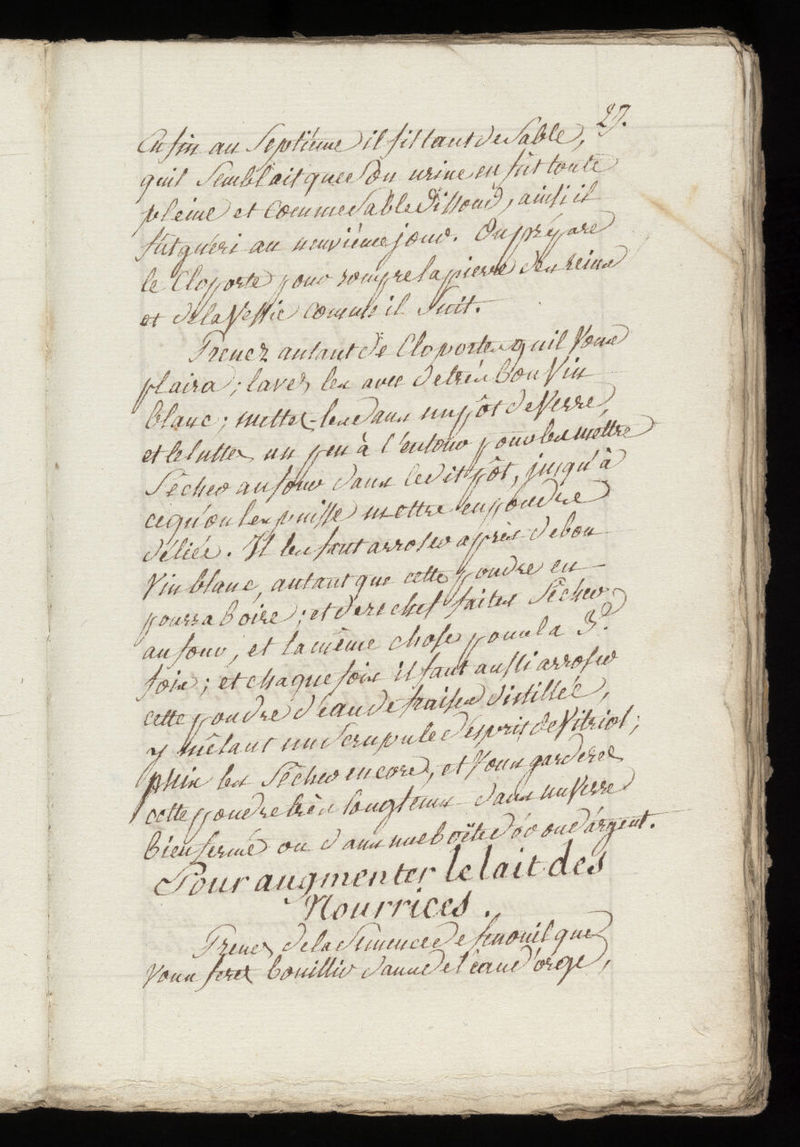 27.
Enfin au Septiéme il fit tant de Sable,
quil Semblait que Son urine en fût toute
pleine et comme Sable dissout, ainsi il
fût guéri au neuviéme jour. On prépare
le Cloporte pour rompre la pierre des reins
et de la Vessie comme il Suit.
Prenez autant de Cloportes quil Vous
plaira; lavez les avec de trés bon Vin
blanc; mettez-les dans un pôt de Verre,
et le luttez un peu à l'entour pour les mettre
Sêcher au four dans ledit pôt, jusqu'à
cequ'on les puisse mettre en poudre
déliée. Il les faut arroser après de bon
Vin blanc, autant que cette poudre en
pourra boire; et derechef faites Sêcher
au four, et la même chose pour la 3.e
fois; et chaque fois il faut aussi arroser
cette poudre d'eau de fraises distillée,
y mêlant un Scrupule d'esprit de Vitriol;
puis les Sêcher encore, et Vous garderez
cette poudre très longtems dans un Verre
bien fermé ou dans une boëte d'or ou d'argent.
Pour augmenter le lait des
Nourrices.
Prenez de la Semence de fenouil que
Vous ferez bouillir dans de l'eau d'orge,